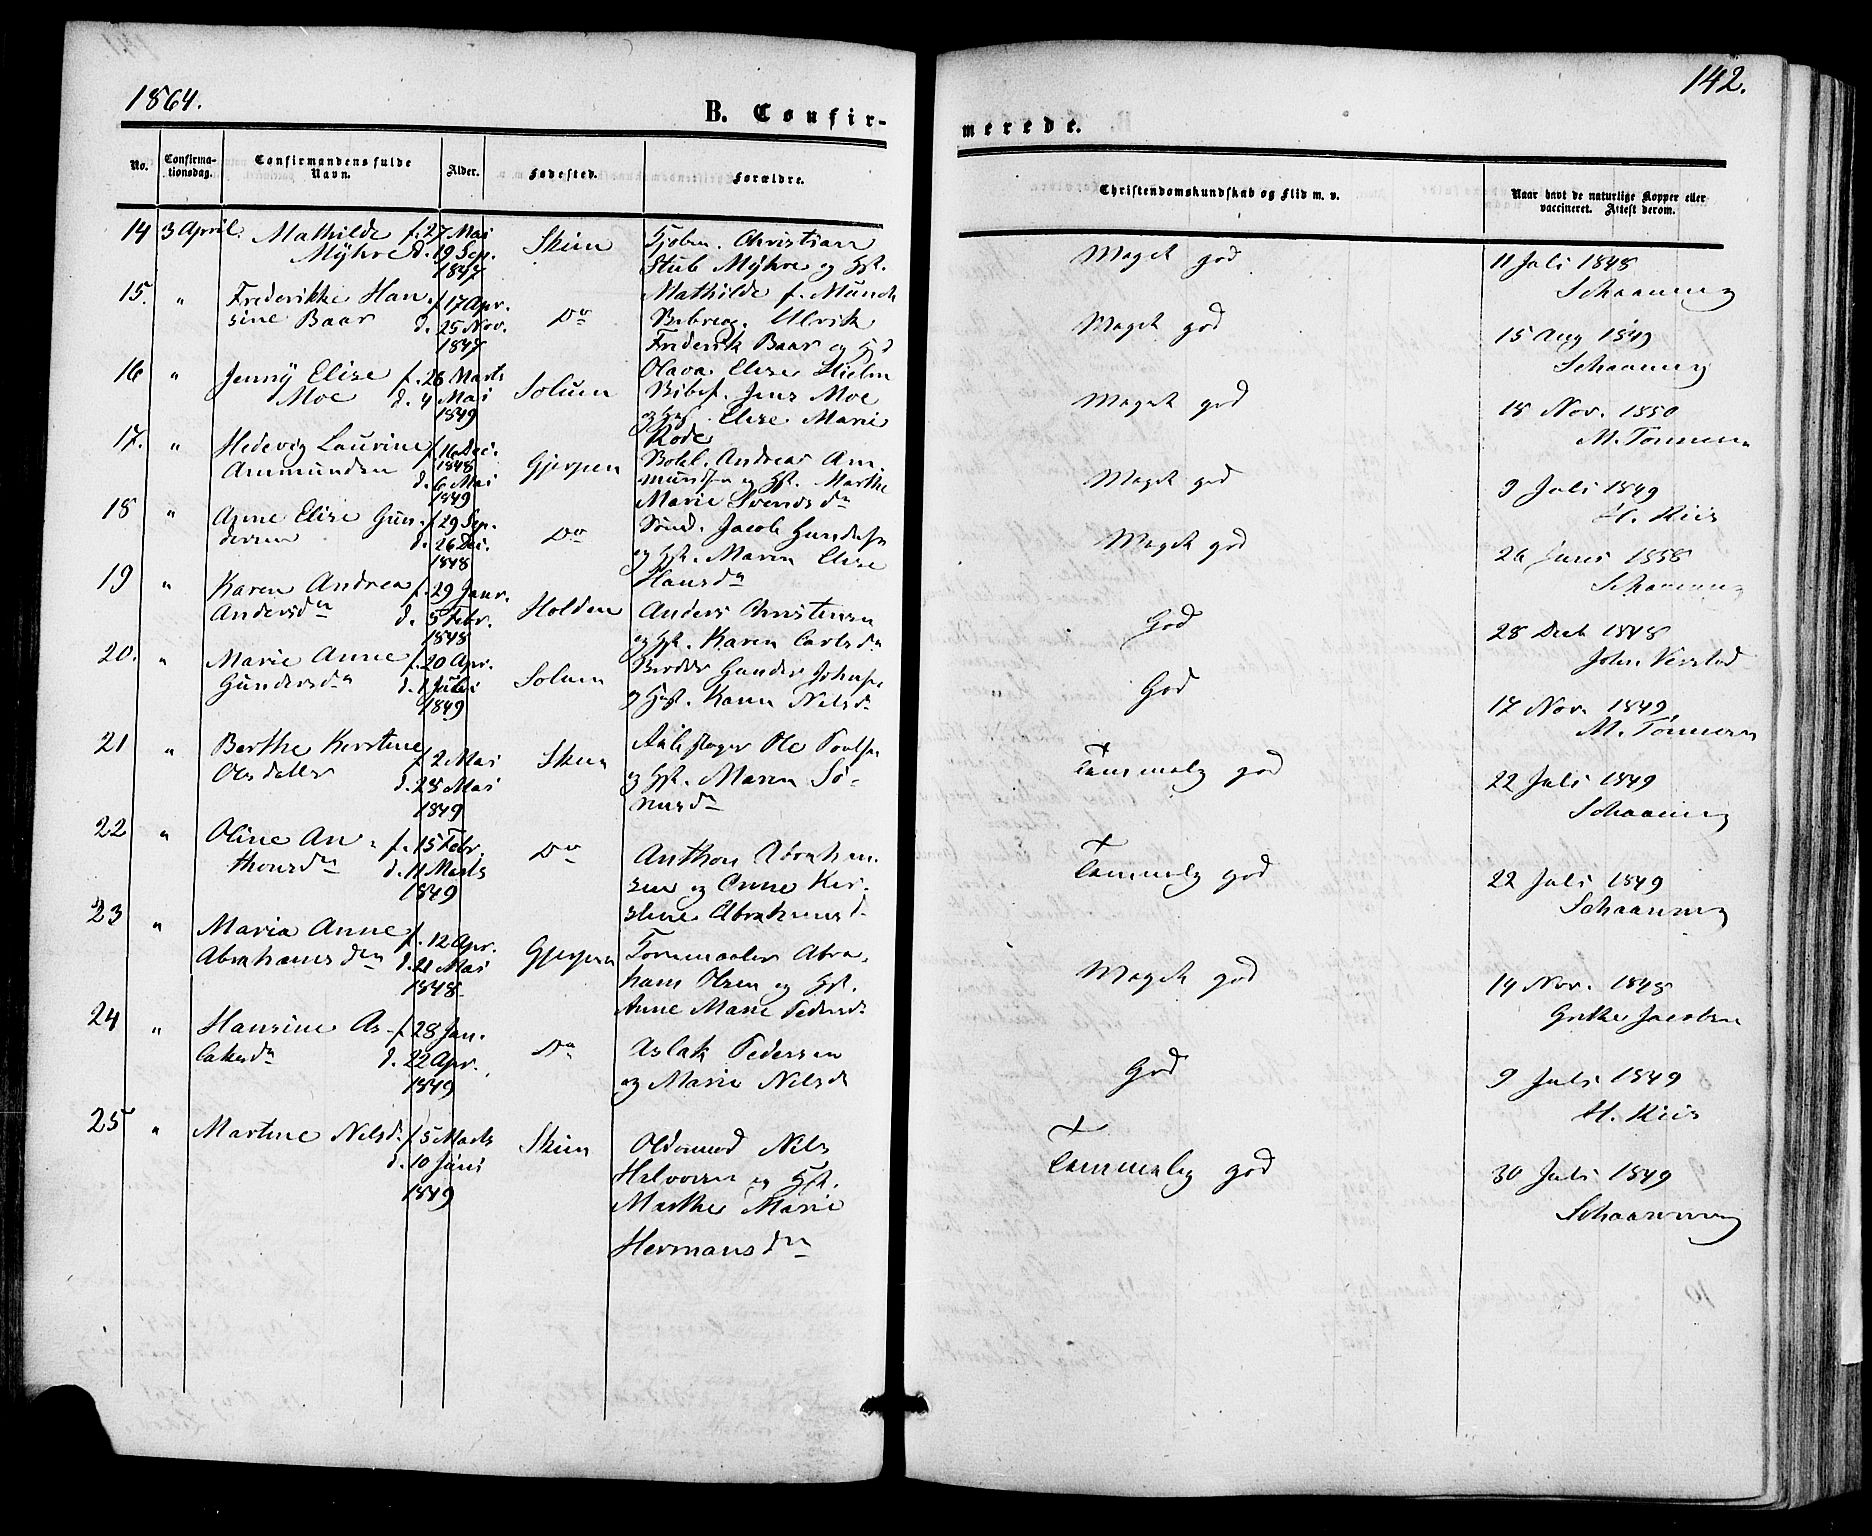 1864.
B. Confir-
No.
Confirma-
tionsdag.
Confirmandens fulde
Navn.
Alder.
Fødested.
Forældre.
14 3 April. Mathilde f. 27 Mai Skien
Myhre d. 19 Sep.
1847
Christian
Stub Myhre og Hst.
Mathilde f. Munch
15. " Frederikke Han- f. 17 Apr.
sine Baar d. 25 Nov. Do
1847
Ulrik
Frederik Baar og
Olava Elise
16 " Jenny Elise f. 28 Marts
Moe d. 4 Mai Solum
1849
Jens Moe
Elise Marie
Rode
17. " Hedevig Laurine f. 16 Dec.
1848
Ammundsen d. 6 Mai Gjerpen
1849
Andreas Am-
og Hst. Marthe
Marie Svendsdn
18 " Anne Elise Gun- f. 29 Sep.
dersen d. 26 Dec. Do
1848
Jacob
og Hst. Maren Elise
Hansdn
19 " Karen Andrea f. 29 Janr.
Andersdn d. 5 Febr. Holden
1848
Anders Christensen
og Hst. Karen Carlsdn
20. " Marie Anne f. 20 Apr.
Gundersdn d. 1 Juli Solum
1849
Gunder
og Hst. Karen Nilsdn
21 " Berthe Kirstine f. 2 Mai Skien
Olsdatter d. 28 Mai
1849
Ole
og Hst. Maren Sø-
rensdn
22 " Oline An- f. 15 Febr.
thonsdn d. 11 Marts Do
1849
Anthon Abraham-
sen og Anne Kir-
stine Abrahamsd.
23 " Maria Anne f. 12 Apr.
Abrahamsdn d. 21 Mai Gjerpen
1848
Abra-
ham Olsen og Hst.
Anne Marie Pedersd.
24 " Hansine As- f. 28 Jan.
laksdn d. 22 Apr. Do
1849
Aslak Pedersen
og Marie Nilsd.
25 " Martine Nilsd. f. 5 Marts Skien
d. 10 Juni
1849
Nils
Halvorsen og Hst.
Marthe Marie
Hermansdn
142.
merede.
Christendomskundskab og Flid m. v.
Naar havt de naturlige Kopper eller
vaccineret. Attest derom.
Meget god 11 Juli 1848
Schaanning
Meget god 15 Aug 1849
Schaanning
Meget god 18 Nov. 1850
M. Tønnesen
Meget god 9 Juli 1849
H. Riis
Meget god 26 Juni 1858
Schaanning
God 28 Decb 1848
John
God 17 Nov. 1849
M. Tønnesen
Temmelig god 22 Juli 1849
Schaanning
Temmelig god 22 Juli 1849
Schaanning
Meget god 14 Nov. 1848
Grethe Jacobsen
God 9 Juli 1849
H. Riis
Temmelig god 30 Juli 1849
Schaanning